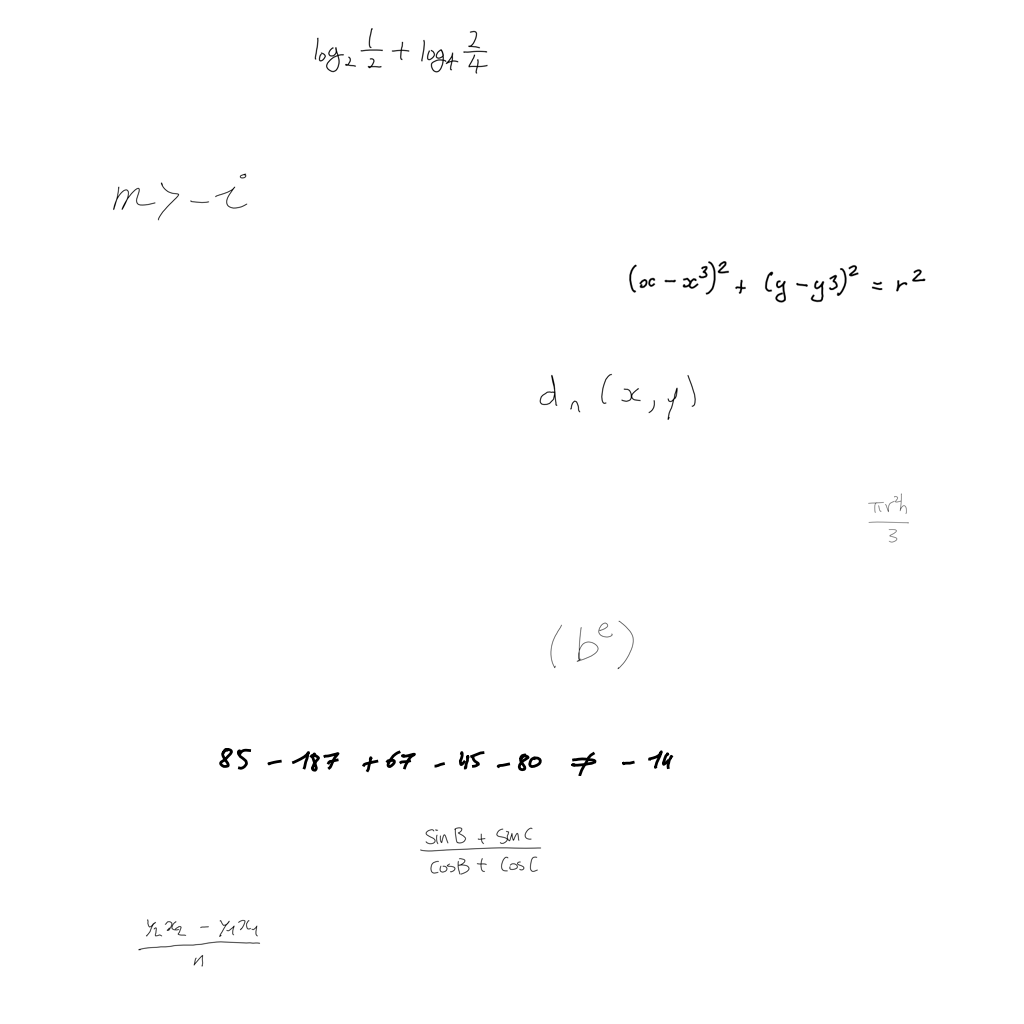 log₂ 1/2 + log₄ 2/4
m > -i
(x - x³)² + (y - y3)² = r²
dₙ (x, y)
πr²h/3
(bᵉ)
85 - 187 + 67 - 45 - 80 ≠ - 14
(sin B + sin C)/(cos B + cos C)
(y₂x₂ - y₁x₁)/n